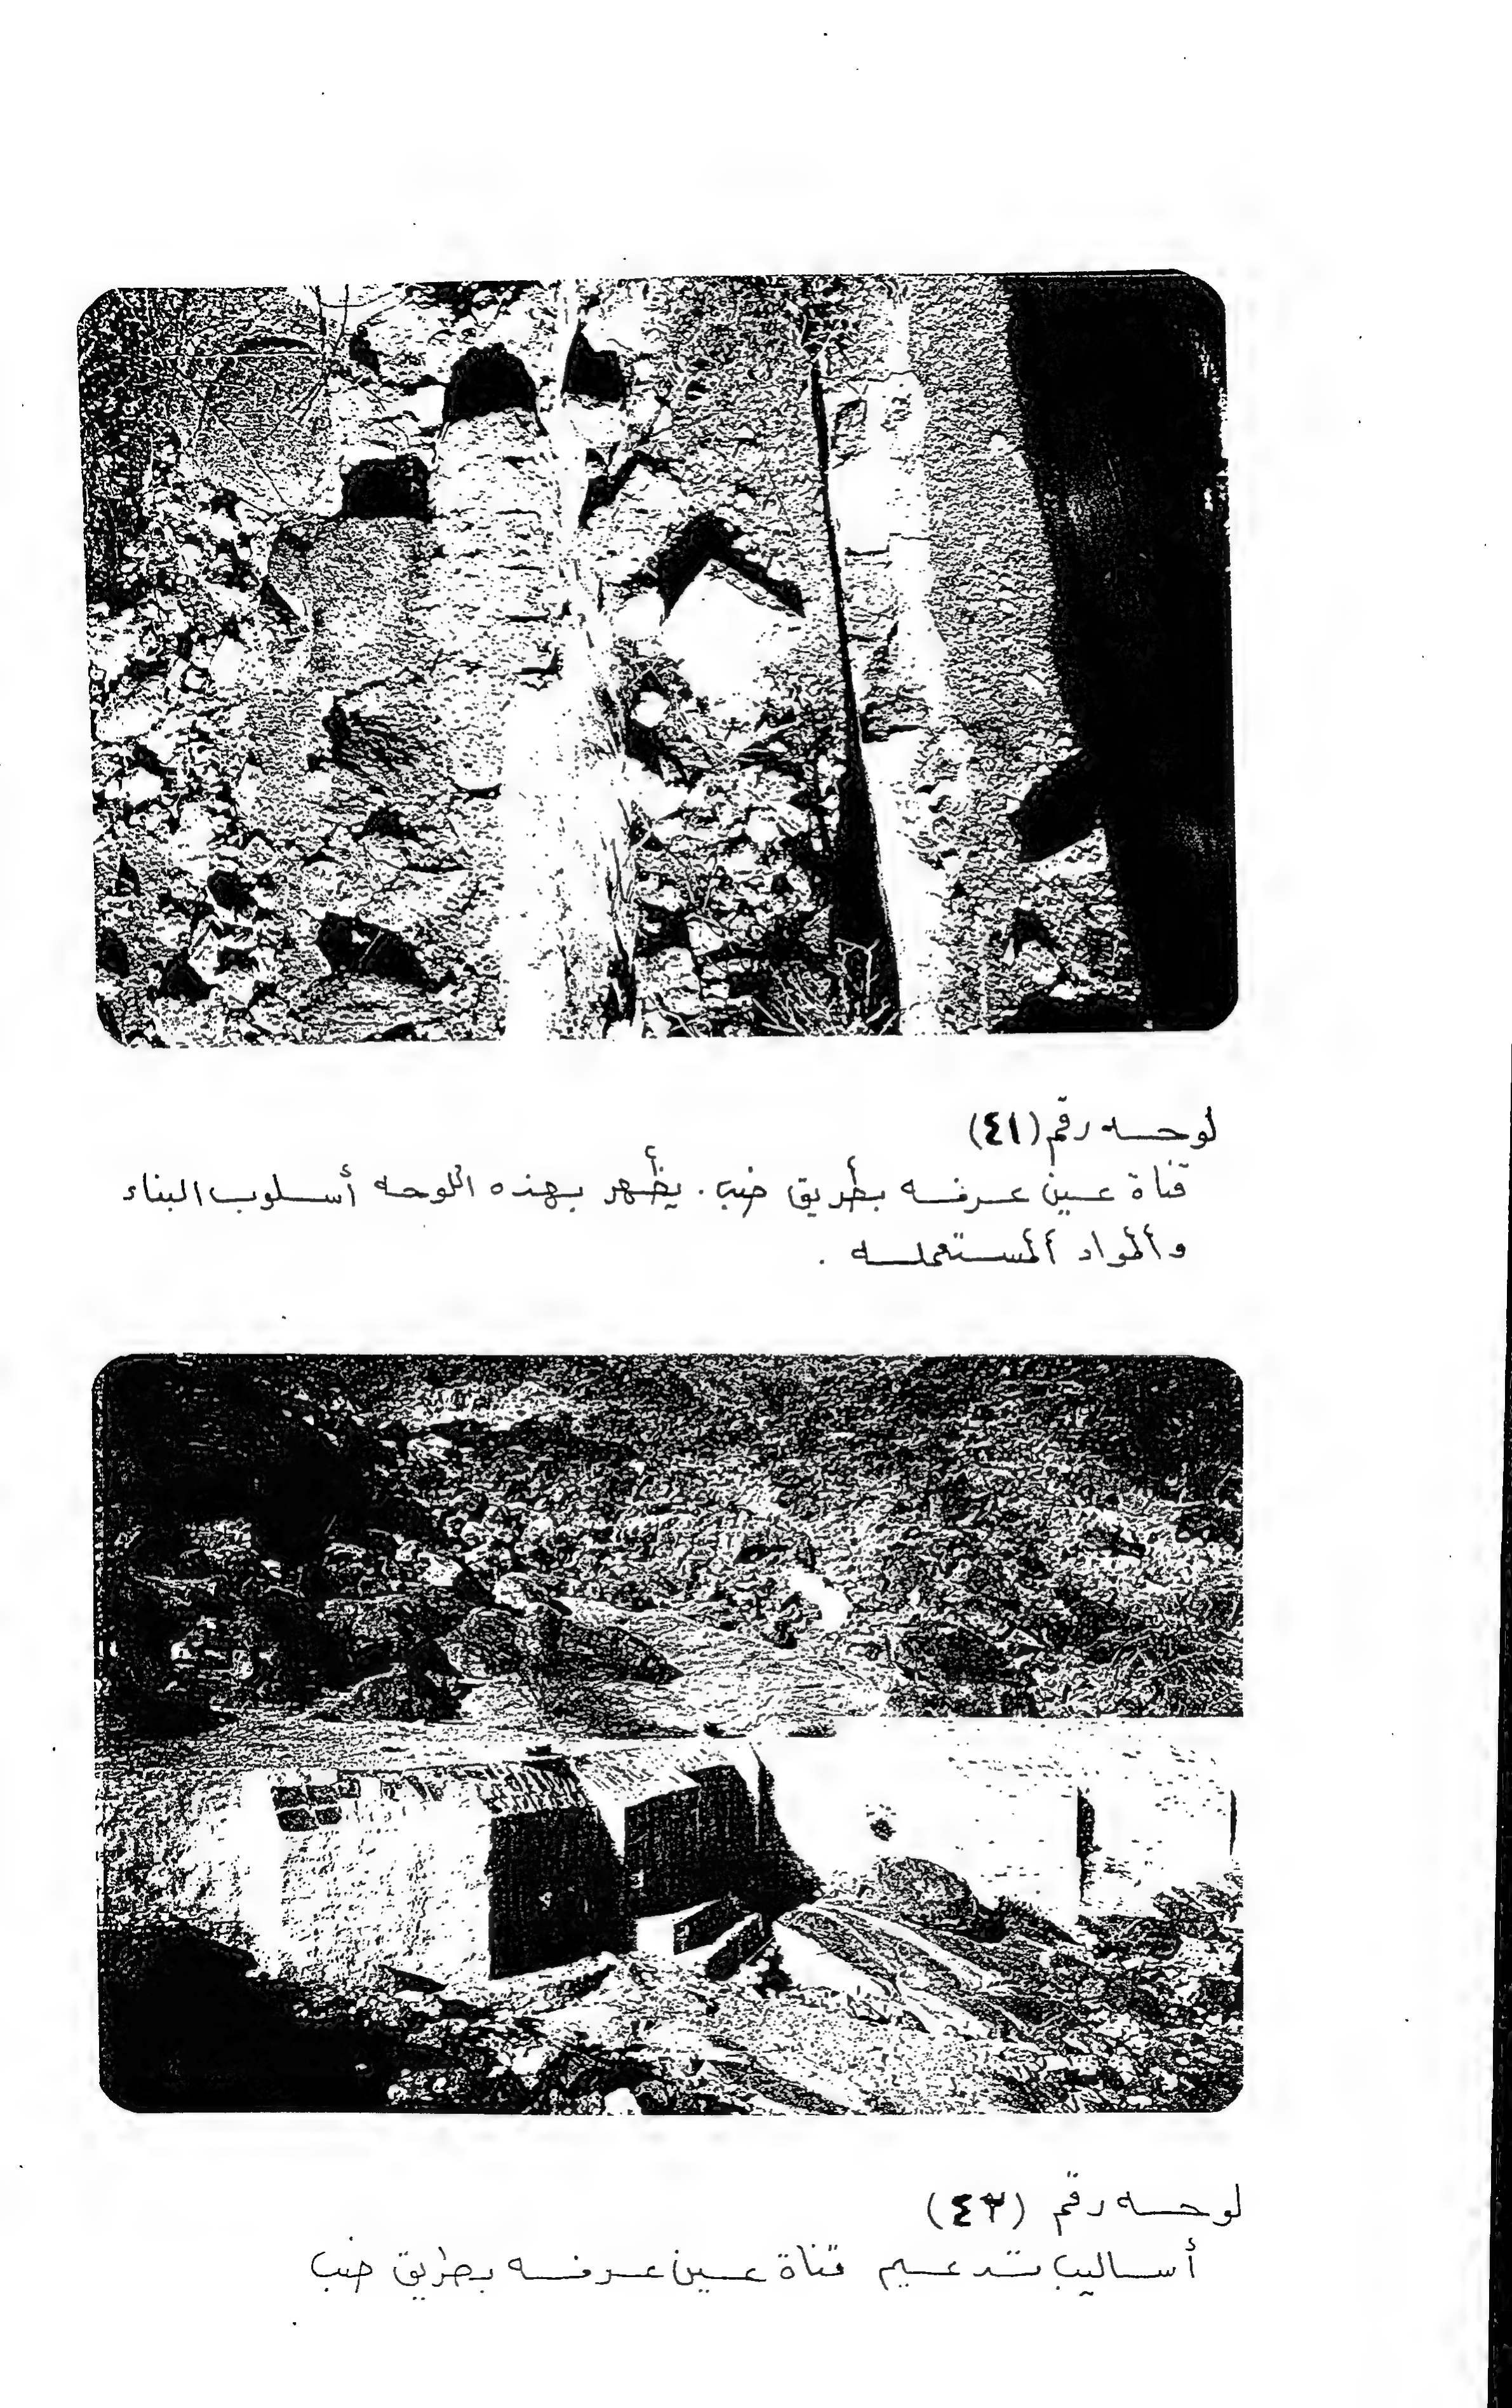 لوحه رقم (٤١)
قناة عين عرفه بطريق ضب . يظهر بهذه اللوحه أسلوب البناء
والمواد المستعمله .
لوحه رقم (٤٢)
أساليب تدعيم قناة عين عرفه بطريق ضب